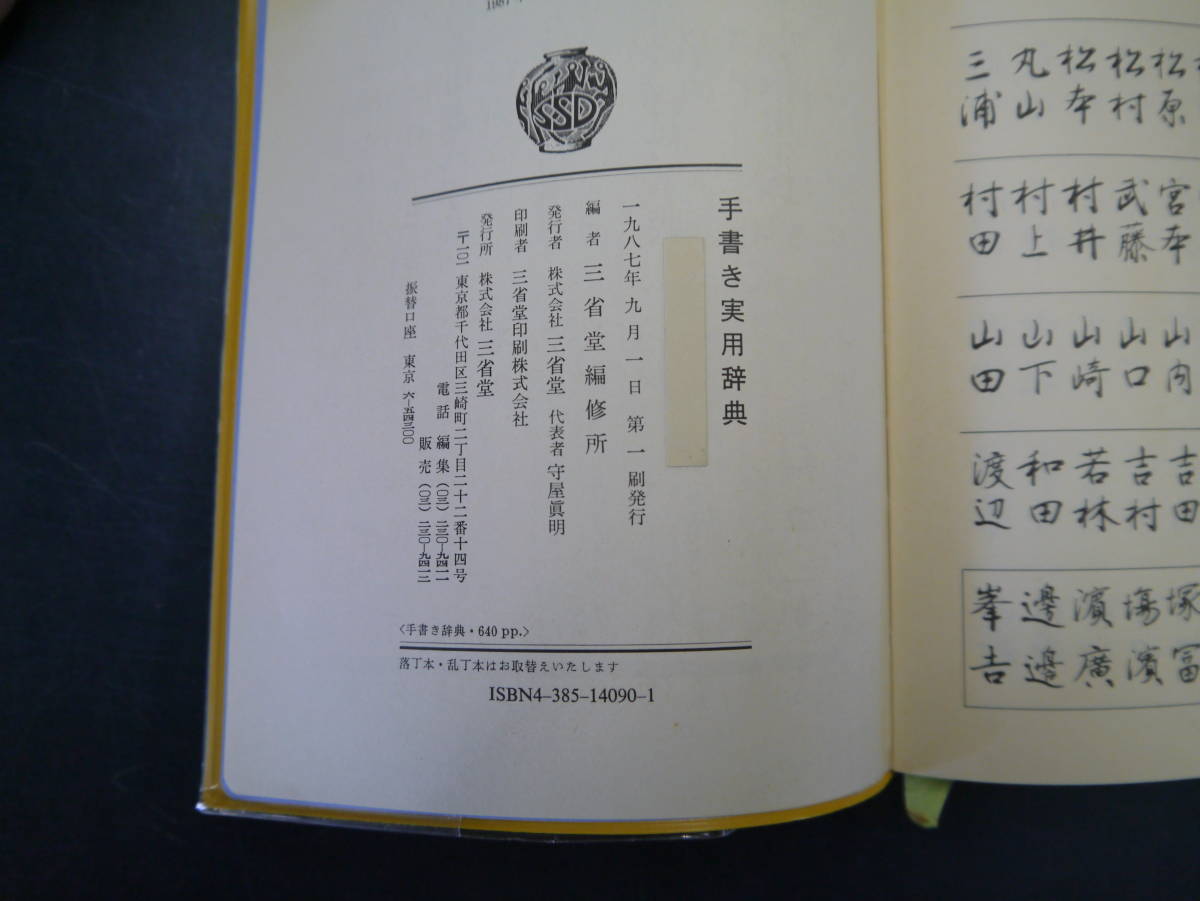 SSD
手書き実用辞典
一九八七年九月一日 第一刷発行
編者 三省堂編修所
発行者 株式会社 三省堂 代表者 守屋眞明
印刷者 三省堂印刷株式会社
発行所 株式会社 三省堂
〒一〇一 東京都千代田区三崎町二丁目二十二番十四号
電話 編集(〇三)二三〇-九四一一
販売(〇三)二三〇-九四一二
振替口座 東京 六-五四三〇〇
〈手書き辞典・640 pp.〉
落丁本・乱丁本はお取替えいたします
ISBN4-385-14090-1
松原
松村
松本
丸山
三浦
宮本
武藤
村井
村上
村田
山内
山口
山崎
山下
山田
吉田
吉村
若林
和田
渡辺
塚 冨
塲 濱
濱 廣
邊 邉
峯 𠮷